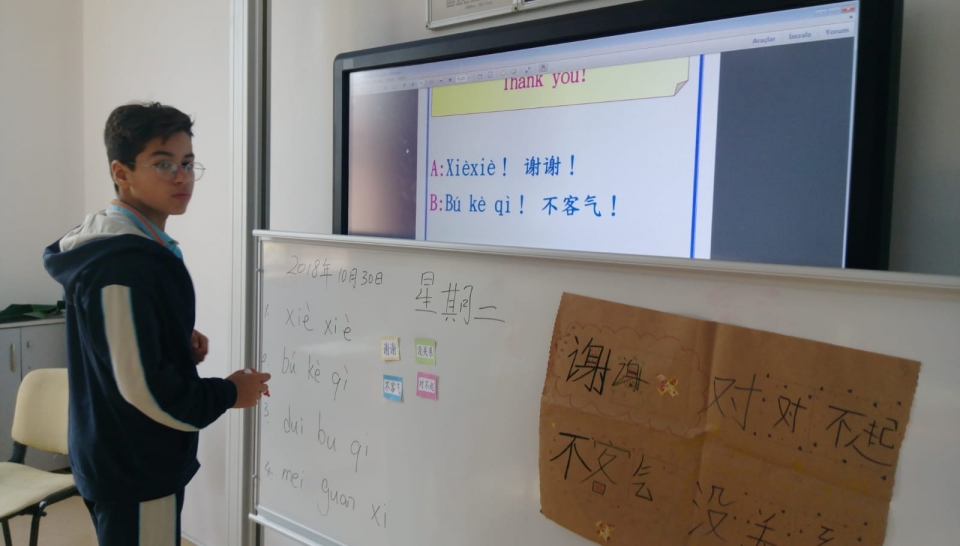 Araçlar İmzala Yorum
Thank you!
A:Xièxiè! 谢谢!
B:Bú kè qì! 不客气!
2018年10月30日 星期二
1. xiè xiè
2. bú kè qì
3. dui bu qi
4. mei guan xi
谢谢 没关系
不客气 对不起
谢谢
对对不起
不客气
没关